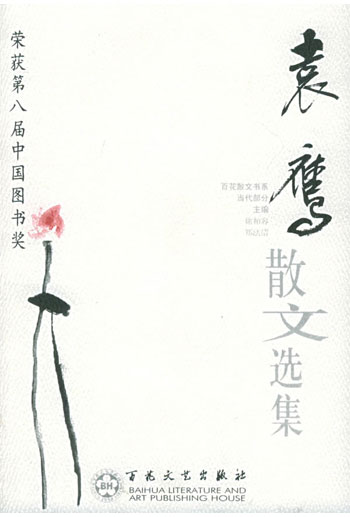 荣获第八届中国图书奖
袁鹰
散文选集
百花散文书系
当代部分
主编
BH
百花文艺出版社
BAIHUA LITERATURE AND
ART PUBLISHING HOUSE